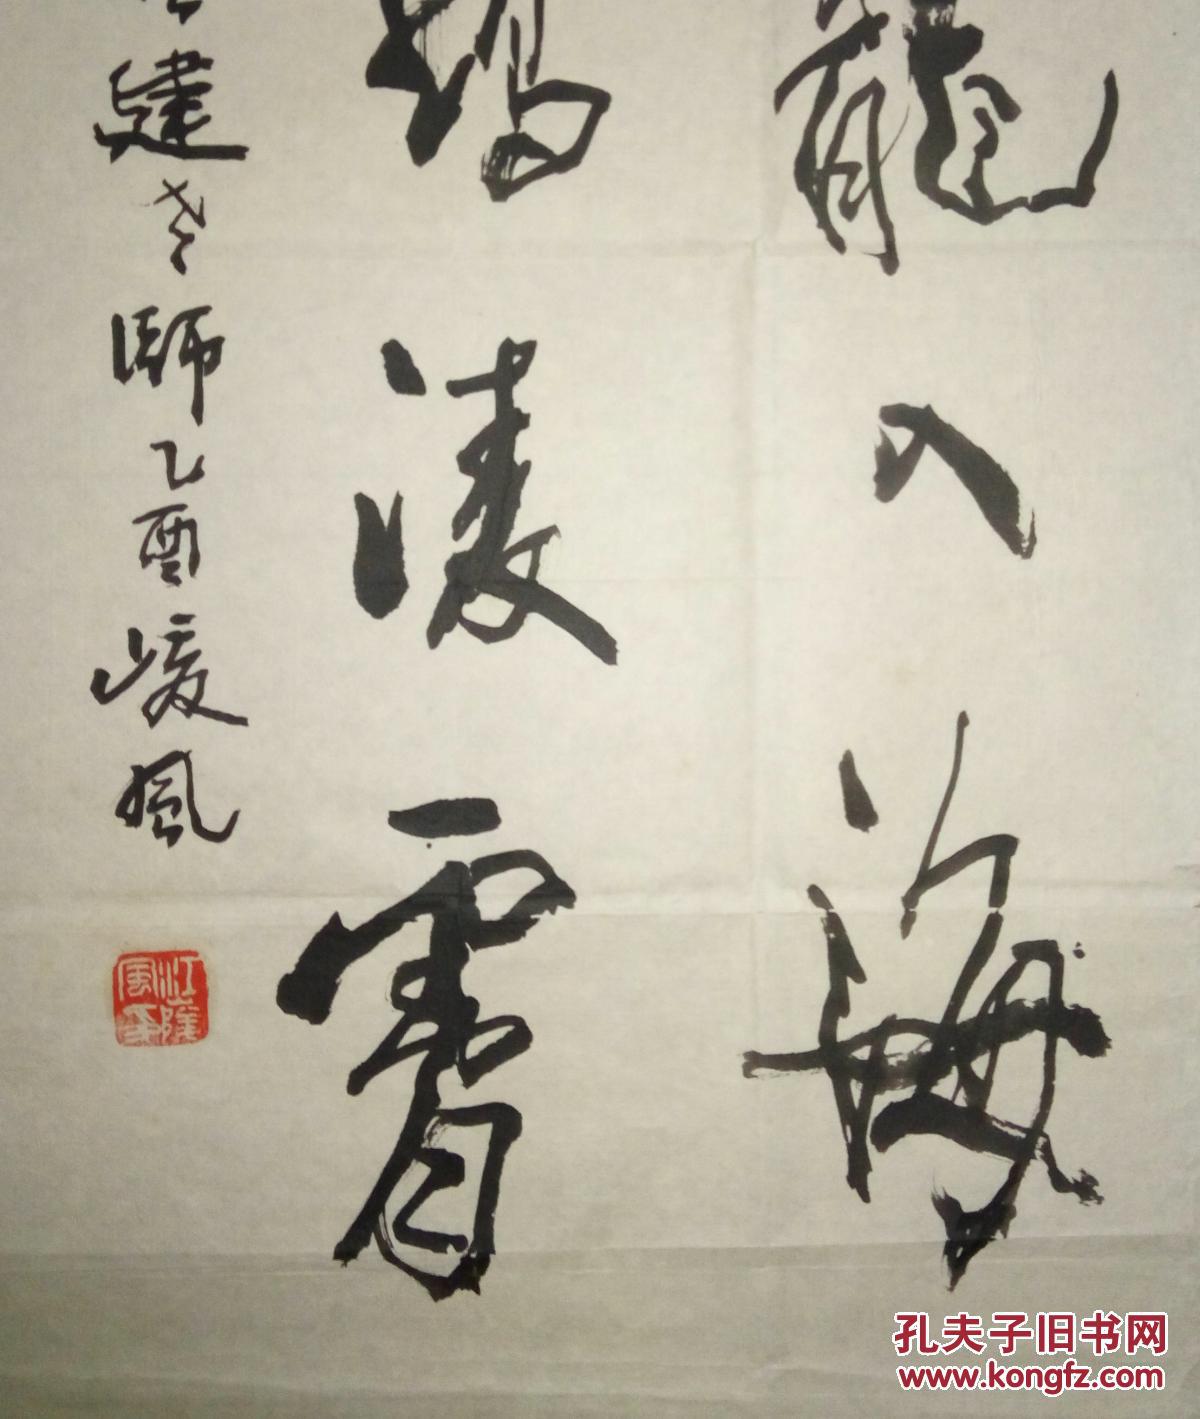 龍入海
凌霄
建老師乙酉峻風
江峻風印
孔夫子旧书网
www.kongfz.com